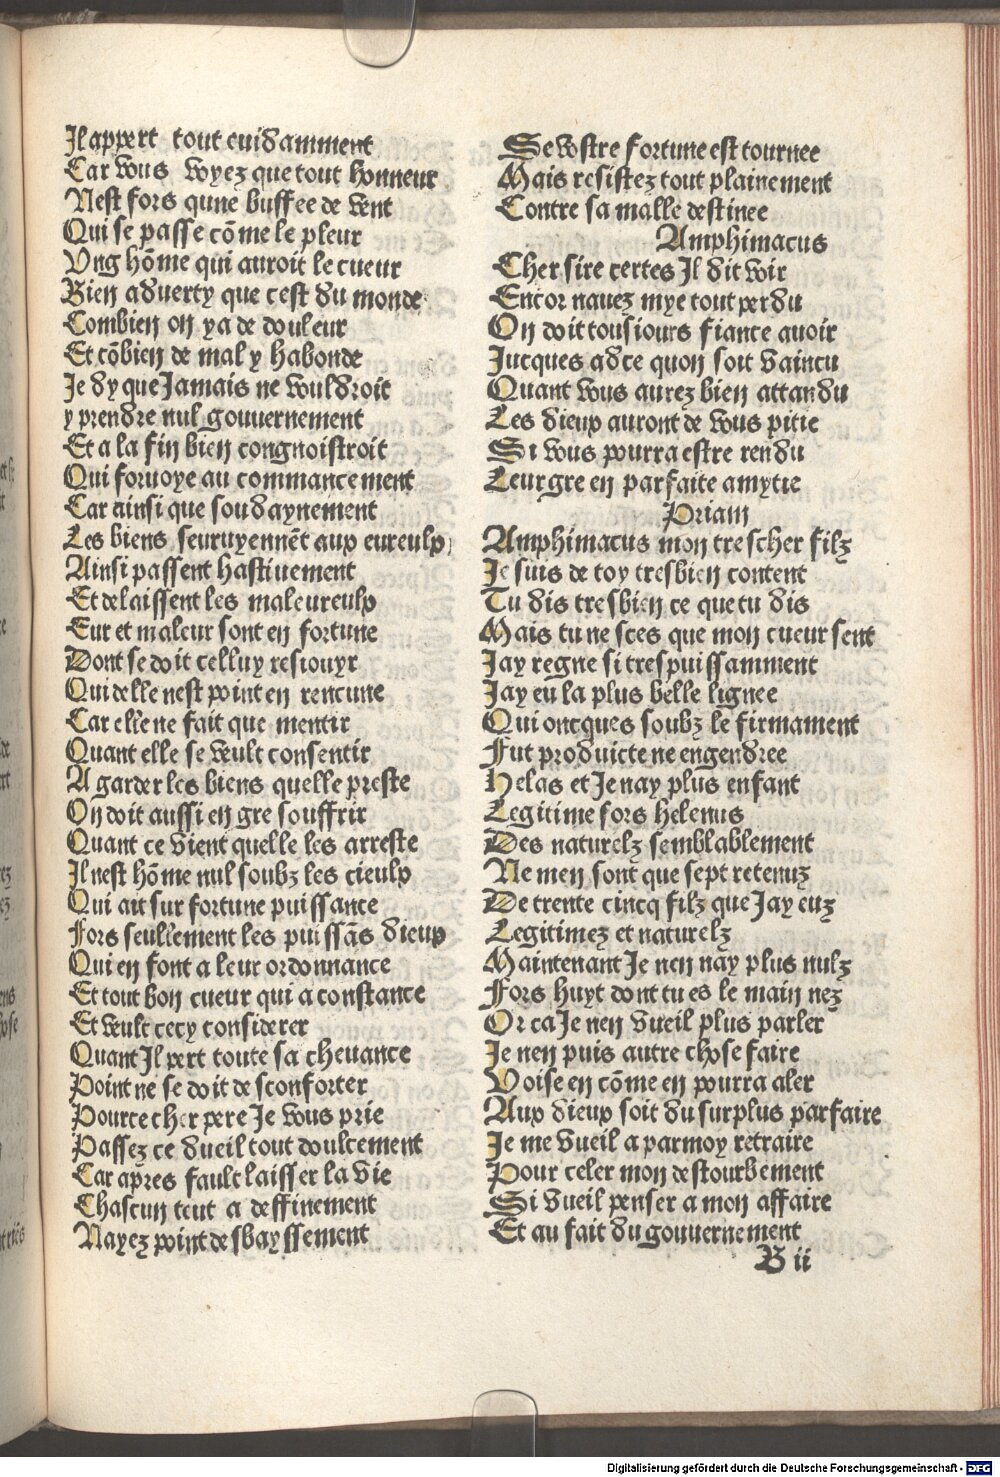 Il appert tout euidamment
Car vous voyez que tout honneur
Nest fors qune buffee de vent
Qui se passe cõme le pleur
Vng hõme qui auroit le cueur
Bien aduerty que cest du monde
Combien on ya de douleur
Et cõbien de mal y habonde
Je dy que Jamais ne vouldroit
y prendre nul gouuernement
Et a la fin bien congnoistroit
Qui foruoye au commancement
Car ainsi que soudaynement
Les biens seuruyennẽt aux eureulx
Ainsi passent hastiuement
Et delaissent les maleureulx
Eur et maleur sont en fortune
Dont se doit celluy resiouyr
Qui delle nest point en rencune
Car elle ne fait que mentir
Quant elle se veult consentir
A garder les biens quelle preste
On doit aussi en gre souffrir
Quant ce vient quelle les arreste
Il nest hõme nul soubz les cieulx
Qui ait sur fortune puissance
Fors seullement les puissãs dieux
Qui en font a leur ordonnance
Et tout bon cueur qui a constance
Et veult cecy considerer
Quant Il pert toute sa cheuance
Point ne se doit desconforter
Pource cher pere Je vous prie
Passez ce dueil tout doulcement
Car apres fault laisser la vie
Chascun tent a deffinement
Nayez point desbayssement
Se vostre fortune est tournee
Mais resistez tout plainement
Contre sa malle destinee
Amphimacus
Cher sire certes Il dit voir
Encor nauez mye tout perdu
On doit tousiours fiance auoir
Jucques adce quon soit vaincu
Quant vous aurez bien attandu
Les dieux auront de vous pitie
Si vous pourra estre rendu
Leur gre en parfaite amytie
Priam
Amphimacus mon trescher filz
Je suis de toy tresbien content
Tu dis tresbien ce que tu dis
Mais tu ne sces que mon cueur sent
Jay regne si trespuissamment
Jay eu la plus belle lignee
Qui oncques soubz le firmament
Fut produicte ne engendree
Helas et Je nay plus enfant
Legitime fors helenus
Des naturelz semblablement
Ne men sont que sept retenuz
De trente cincq filz que Jay euz
Legitimez et naturelz
Maintenant Je nen nay plus nulz
Fors huyt dont tu es le main nez
Or ca Je nen vueil plus parler
Je nen puis autre chose faire
Voise en cõme en pourra aler
Aux dieux soit du surplus parfaire
Je me vueil a par moy retraire
Pour celer mon destourbement
Si vueil penser a mon affaire
Et au fait du gouuernement
B ii
Digitalisierung gefördert durch die Deutsche Forschungsgemeinschaft - DFG